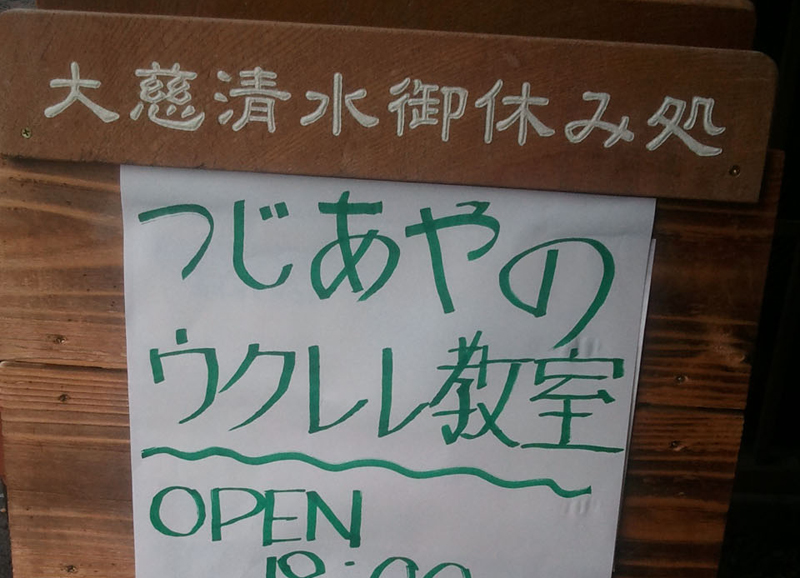 大慈清水御休み処
つじあやの
ウクレレ教室
OPEN